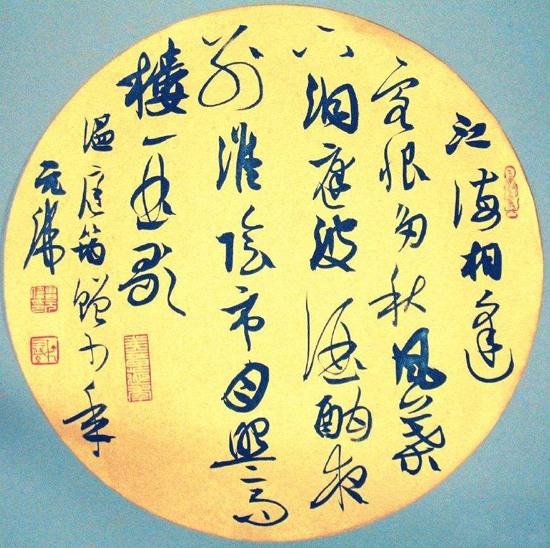 江海相逢
客恨多秋風葉
下洞庭波酒酣夜
别淮陰市月照高
樓一曲歌
温庭筠贈少年
元